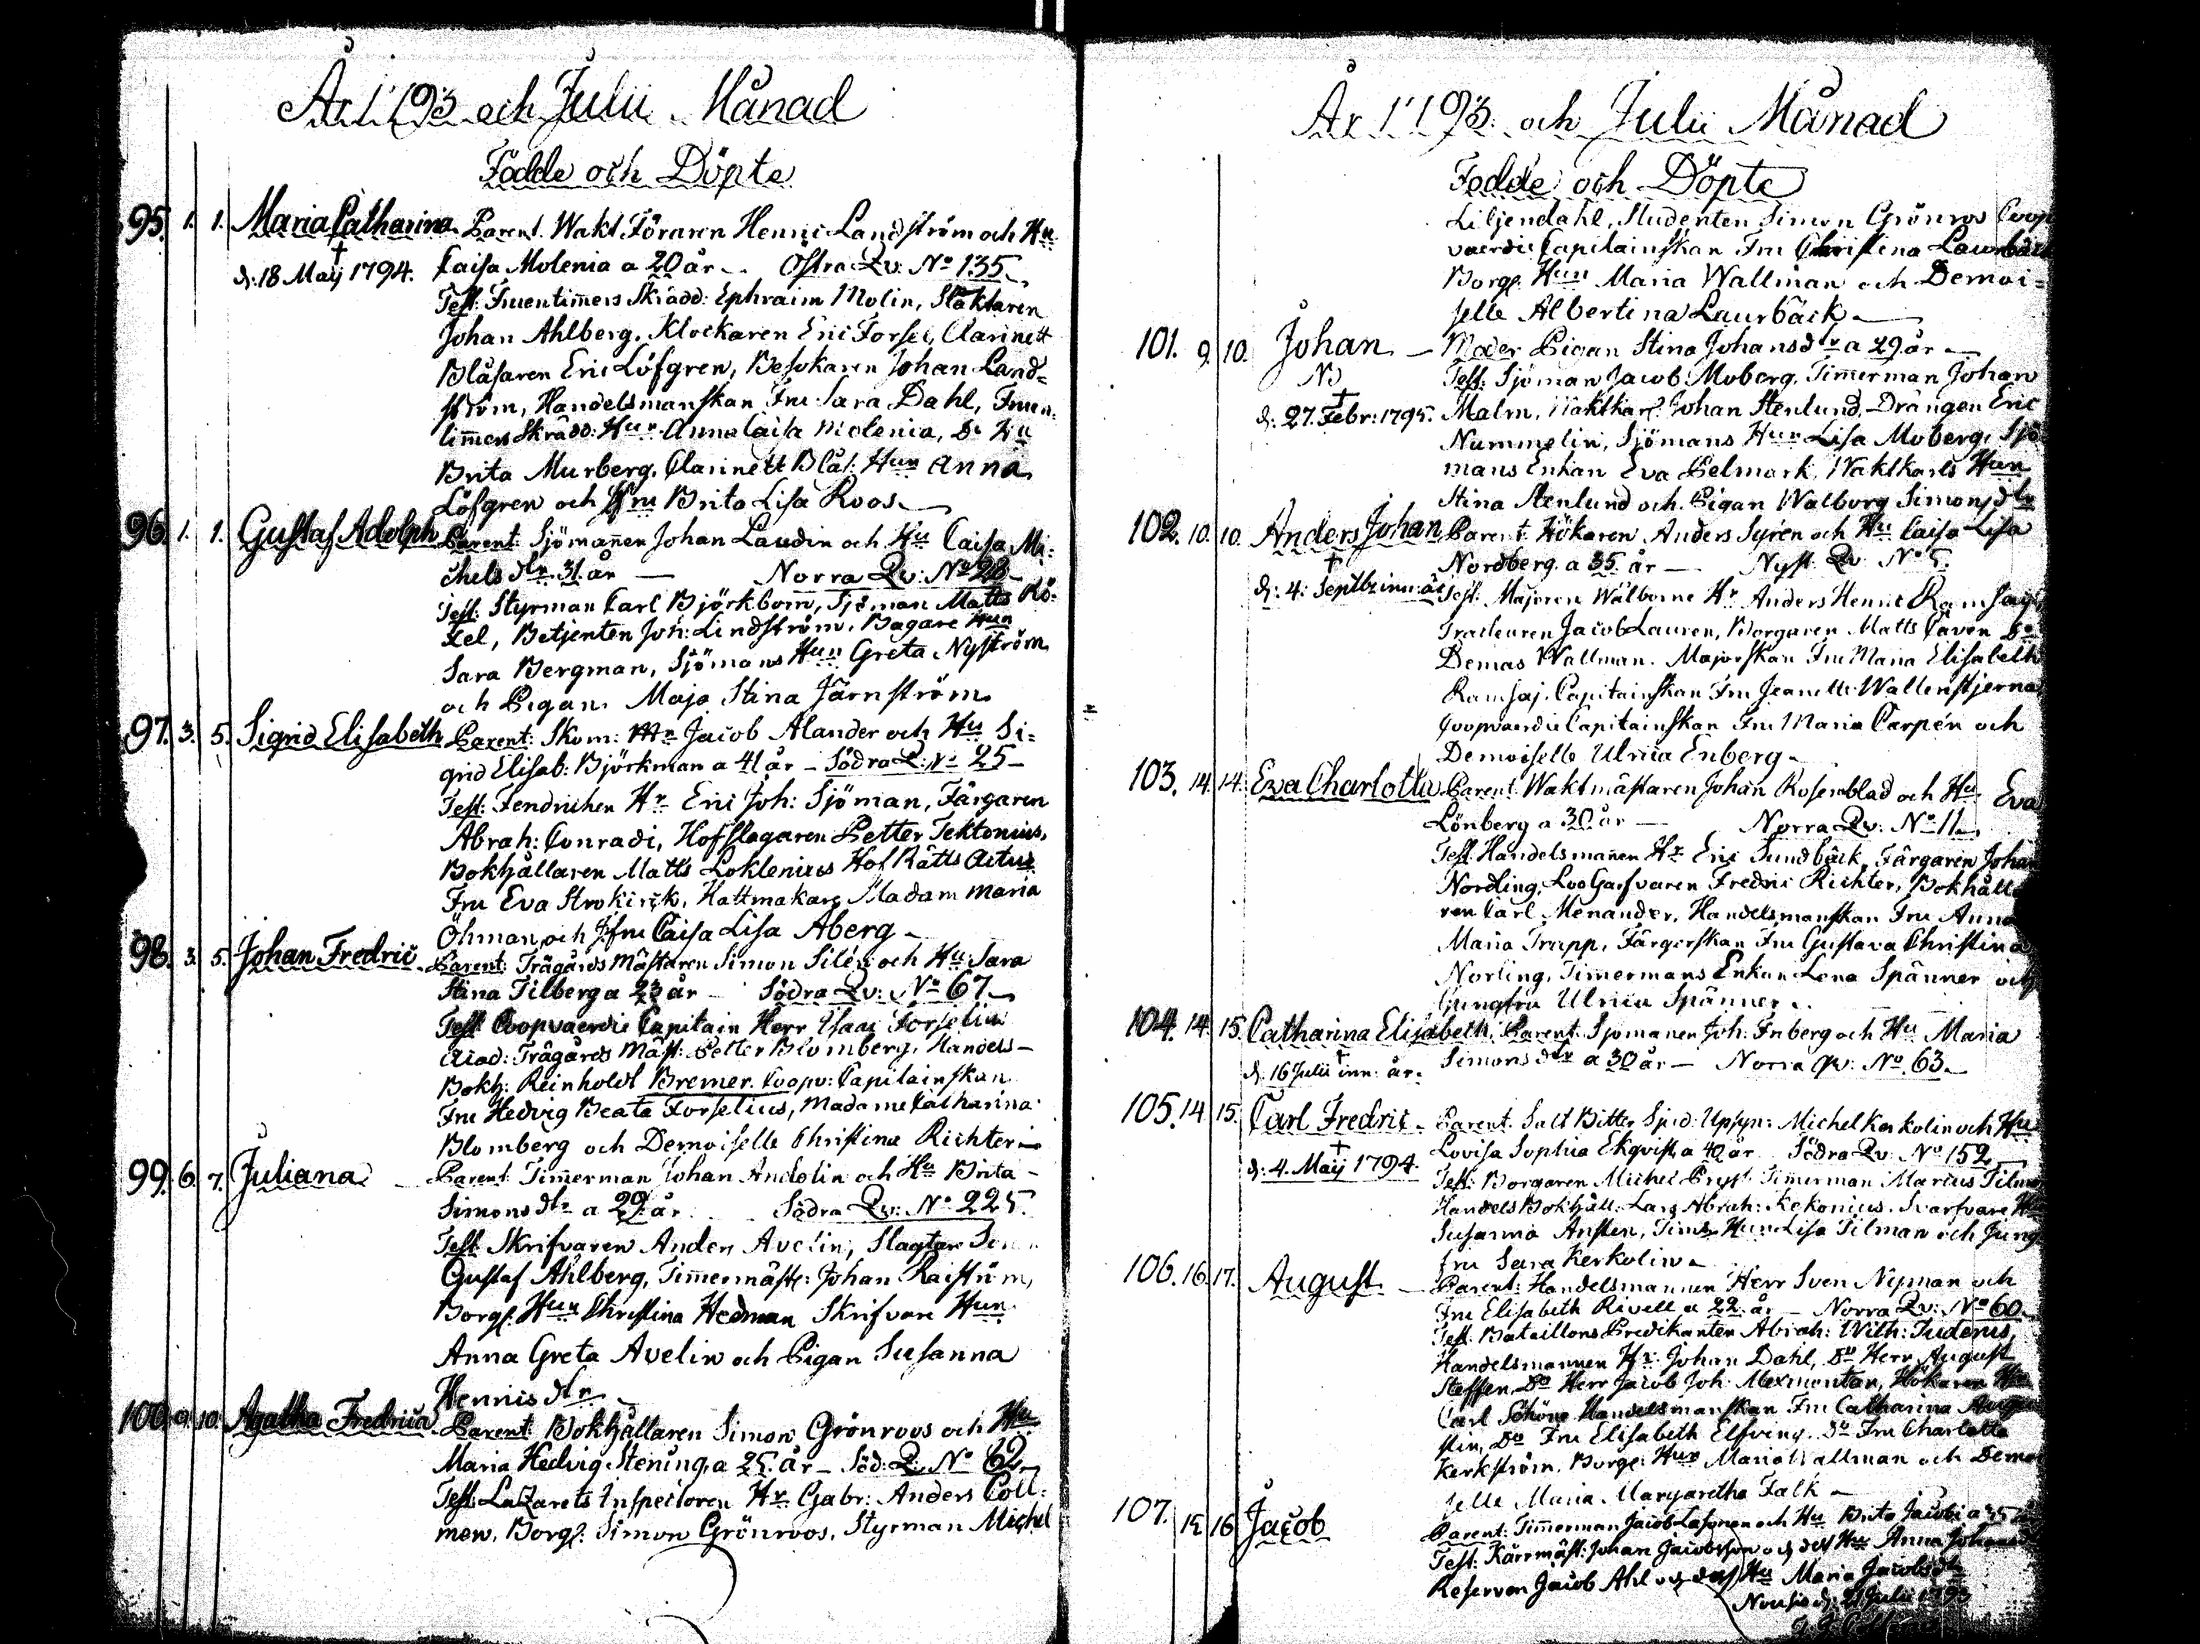 År 1793 och Julii Månad
Födde och Döpte
95. 1. 1. Maria Catharina Parent. Wakt Föraren Henric Landström och Hu
† d. 18 Maij 1794. Caisa Molenia a 20 år - Östra Qv: No 135
Test: Fruentimers Skrädd: Ephraim Molin, Slaktaren
Johan Ahlberg, Klockaren Eric Forsel, Clarinett
Blåsaren Eric Löfgren, Besökaren Johan Land=
ström, Handelsmanskan Fru Sara Dahl, Fruen
timers Skrädd: Hun Anna Caisa Molenia, Do Hu
Brita Murberg, Clarinett Blås: Hun Anna
Löfgren och Jfru Brita Lisa Roos
96. 1. 1. Gustaf Adolph Parent: Sjömannen Johan Laudin och Hu Caisa Mi:
chels dtr 31 år — Norra Qv: No 28
Test: Styrman Carl Björkbom, Sjöman Matts Rö-
xel, Betjenten Joh: Lindström, Bagare Hun
Sara Bergman, Sjömans Hun Greta Nyström
och Pigan Maja Stina Järnström
97. 3. 5. Sigrid Elisabeth Parent: Skom: Mr Jacob Alander och Hu Si=
grid Elisab: Björkman a 41 år - Södra Q: No 25 -
Test: Fendrichen Hr Eric Joh: Sjöman, Färgaren
Abrah: Conradi, Hofslagaren Petter Tektonius,
Bokhållaren Matts Loklenius Hof Rätts Actua
Fru Eva Strokirck, Hattmakare Madam Maria
Öhman och Jfru Caisa Lisa Åberg -
98. 3. 5. Johan Fredric Parent: Trägårds Mästaren Simon Silén och Hu Sara
Stina Tilberg a 23 år - Södra Qv: No 67
Test Coopvaerdie Capitain Herr Isaac Forselius
Acad: Trägårds Mäst: Petter Blomberg, Handels-
Bokh: Reinholdt Bremer. Coopv: Capitainskan
Fru Hedvig Beata Forselius, Madame Catharina
Blomberg och Demoiselle Christina Richter
99. 6. 7. Juliana Parent: Timmerman Johan Andelin och Hu Brita -
Simons dtr a 29 år Södra Qv: No 225
Test Skrifvaren Anders Avelin, Slagtare
Gustaf Ahlberg, Timmermäst: Johan Raiström,
Borgs: Hun Christina Hedman Skrifvare Hun
Anna Greta Avelin och Pigan Susanna
Hennis dtr
100. 9. 10. Agatha Fredrica Parent: Bokhållaren Simon Grönroos och Hu
Maria Hedvig Stening, a 25 år - Söd: Q: No 62
Test: Lazarets Inspectoren Hr Gabr: Anders Coll:
men, Borgs: Simon Grönroos, Styrman Michel
År 1793 och Julii Månad
Födde och Döpte
Liljendahl, Studenten Simon Grönros Coop
vaerdie Capitainskan Fru Christina Laurbäck
Borgs: Hun Maria Wallman och Demoi=
selle Albertina Laurbäck
101. 9. 10. Johan — Moder Pigan Stina Johansdtr a 29 år —
Test: Sjöman Jacob Moberg, Timmerman Johan
† d. 27. Febr: 1795. Malm, Waktkarl Johan Stenlund, Drängen Eric
Nummelin, Sjömans Hun Lisa Moberg, Sjö
mans Enkan Eva Belmark, Waktkarls Hun
Stina Stenlund och Pigan Walborg Simonsdtr
102. 10. 10. Anders Johan Parent: Hökaren Anders Syrén och Hu Caisa Lisa
† Nordberg a 35 år — Nyst. Qv. No 5.
d: 4: Septbr inn: år Test: Majoren Wälborne Hr Anders Henric Ramsay,
Tracteuren Jacob Lauren, Borgaren Matts Caven Do
Demas Wallman, Majorskan Fru Maria Elisabeth
Ramsaj, Capitainskan Fru Jeanette Wallenstjerna
Coopvaerdie Capitainskan Fru Maria Carpén och
Demoiselle Ulrica Enberg -
103. 14. 14. Eva Charlotta Parent: Waktmästaren Johan Rosenblad och Hu Eva
Lönberg a 30 år — Norra Qv: No 11
Test. Handelsmannen Hr Eric Sundbäck, Färgaren Johan
Nordling, Logarfvaren Fredric Richter, Bokhålla
ren Carl Menander, Handelsmanskan Fru Anna
Maria Trapp, Färgerskan Fru Gustava Christina
Norling, Timmermans Enkan Lena Spänner och
Jungfru Ulrica Spänner
104. 14. 15. Catharina Elisabeth Parent: Sjömannen Joh: Friberg och Hu Maria
† d. 16 Julii inn: år. Simonsdtr a 30 år — Norra Qv: No 63
105. 14. 15. Carl Fredric - Parent: Salt Petter Sjud: Upsyn: Michel Kerkolin och Hu
† Lovisa Sophia Ekqvist, a 40 år Södra Qv: No 152
d: 4. Maij 1794. Test: Borgaren Michel Timmerman Marcus Tilman
Handels Bokhåll: Lars Abrah: Kekonius, Svarfvare Hu
Susanna Ansten, Timms Hun Lisa Tilman och Jung
fru Sara Kerkolin
106. 16. 17. August — Parent: Handelsmannen Herr Sven Nyman och
Fru Elisabeth Rivell a 22 år - Norra Qv: No 60
Test: Bataillons Predikanten Abrah: Wilh: Indenius,
Handelsmannen Hr Johan Dahl, Do Herr August
Steffen, Do Herr Jacob Joh: Alexmontan, Hökaren Hr
Carl Schöne Handelsmanskan Fru Catharina Augu
stin, Do Fru Elisabeth Elfving, Do Fru Charlotta
Kerkström, Borgs: Hun Maria Wallman och Demoi
selle Maria Margaretha Falk -
107. 15 16 Jacob Parent: Timmerman Jacob Lasonen och Hu Brita Jacobi a 35
Test: Kärrmäst: Johan Jacobsson och dess Hu Anna Johansd
Reserven Jacob Ahl och dess Hu Maria Jacobsdtr
Nousis d: 21 Julii 1793